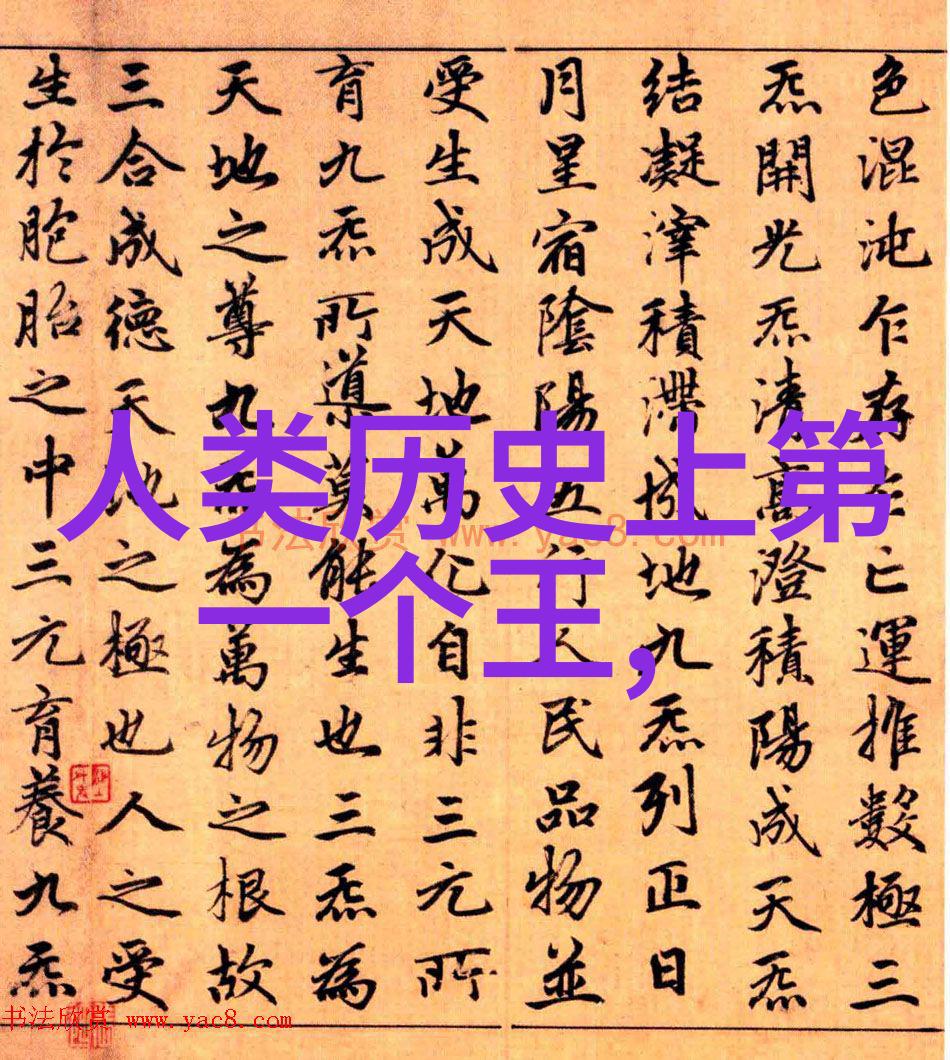 色混沌乍存乍亡運推數極三
炁開光炁清高澄積陽成天炁
結凝滓積滯成地九炁列正日
月星宿陰陽五行人民品物並
受生成天地萬化自非三元所
育九炁所導莫能生也三炁為
天地之尊九炁為萬物之根故
三合成德天地之極也人之受
生於胞胎之中三元育養九炁
人类历史上第
一个王,
书法欣赏 www.yac8.com
书法欣赏 www.yac8.com